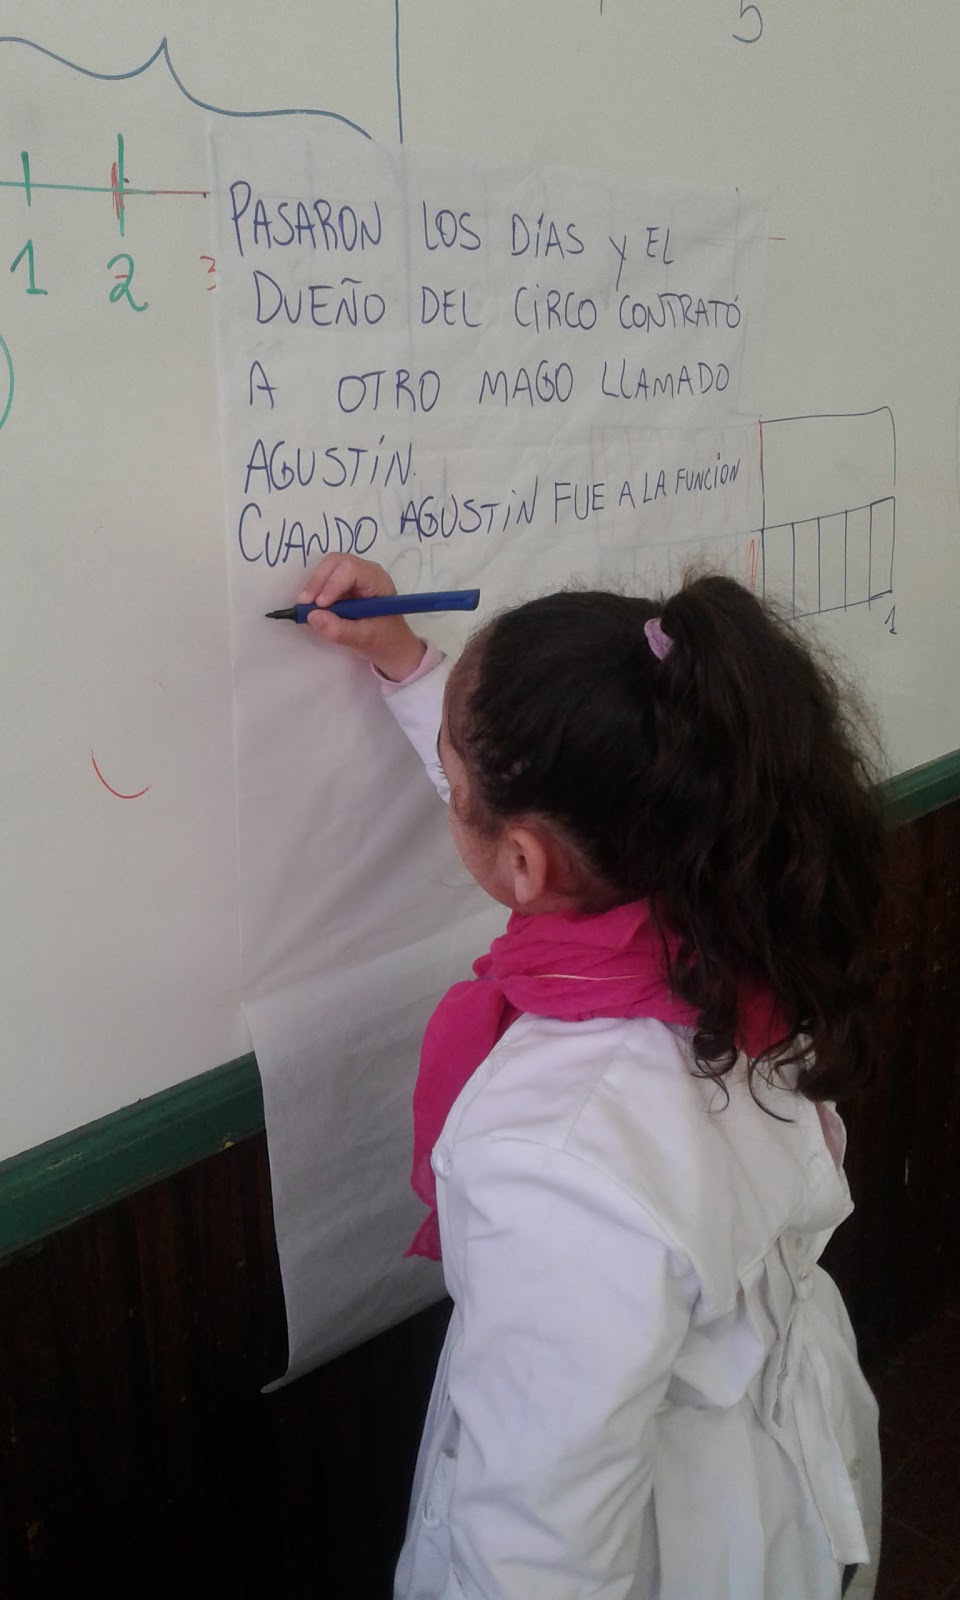 5
1 2 3
PASARON LOS DÍAS Y EL
DUEÑO DEL CIRCO CONTRATÓ
A OTRO MAGO LLAMADO
AGUSTÍN.
CUANDO AGUSTÍN FUE A LA FUNCIÓN
1